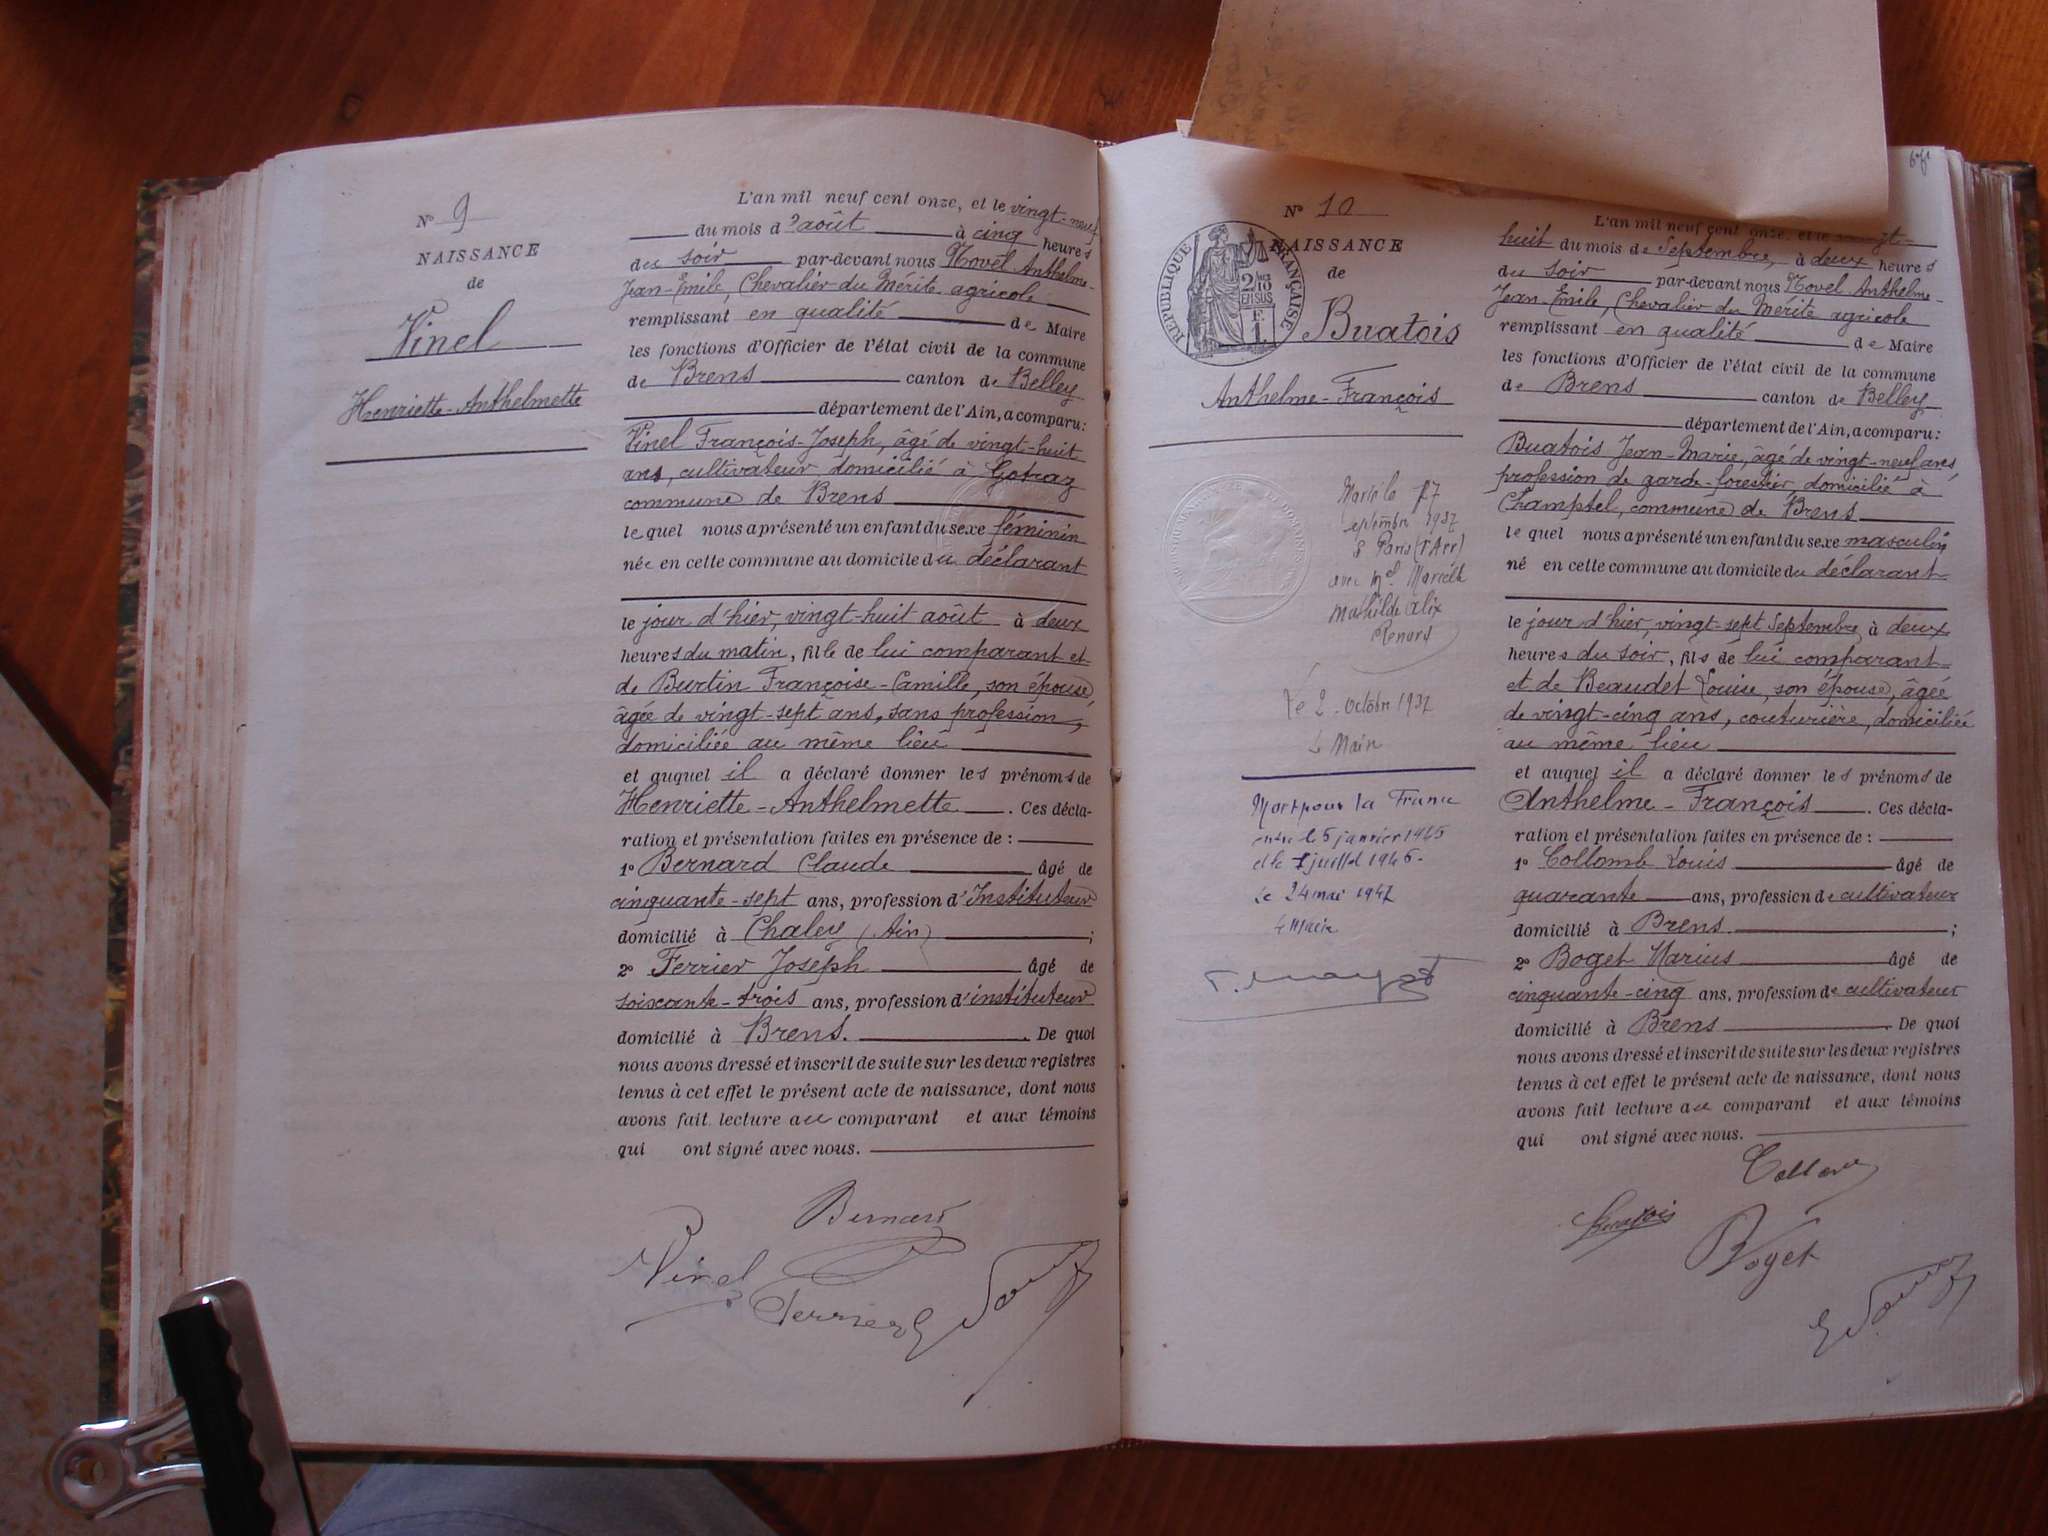 N° 9
NAISSANCE
de
Vinel
Henriette-Anthelmette
L'an mil neuf cent onze, et le vingt-neuf
du mois d'août à cinq heures
du soir par-devant nous Novel Anthelme-
Jean-Emile, Chevalier du Mérite agricole
remplissant en qualité de Maire
les fonctions d'Officier de l'état civil de la commune
de Brens canton de Belley
département de l'Ain, a comparu:
Vinel François-Joseph, âgé de vingt-huit
ans, cultivateur domicilié à
commune de Brens
le quel nous a présenté un enfant du sexe féminin
née en cette commune au domicile du déclarant
le jour d'hier, vingt-huit août à deux
heures du matin, fille de lui comparant et
de Burtin Françoise-Camille, son épouse,
âgée de vingt-sept ans, sans profession,
domiciliée au même lieu
et auquel il a déclaré donner les prénoms de
Henriette-Anthelmette. Ces décla-
ration et présentation faites en présence de :
1° Bernard Claude âgé de
cinquante-sept ans, profession d'Instituteur
domicilié à Chaley (Ain) ;
2° Ferrier Joseph âgé de
soixante-trois ans, profession d'instituteur
domicilié à Brens. De quoi
nous avons dressé et inscrit de suite sur les deux registres
tenus à cet effet le présent acte de naissance, dont nous
avons fait lecture au comparant et aux témoins
qui ont signé avec nous.
Bernard
Vinel
Ferrier
N° 10
NAISSANCE
de
RÉPUBLIQUE FRANÇAISE
2/10 EN SUS
F. 1
Buatois
Anthelme-François
Marié le 27
septembre 1937
à Paris
avec Mel Marcelle
Mathilde Alix
Renard
Le 2 octobre 1937
Le Maire
Mort pour la France
entre le 5 janvier 1945
et le juillet 1945.
Le 24 mai 1947
Le Maire
L'an mil neuf cent onze, et le vingt-
huit du mois de Septembre, à deux heures
du soir par-devant nous Novel Anthelme-
Jean-Emile, Chevalier du Mérite agricole
remplissant en qualité de Maire
les fonctions d'Officier de l'état civil de la commune
de Brens canton de Belley
département de l'Ain, a comparu:
Buatois Jean-Marie, âgé de vingt-neuf ans,
profession de garde-forestier, domicilié à
Champtel, commune de Brens
le quel nous a présenté un enfant du sexe masculin
né en cette commune au domicile du déclarant
le jour d'hier, vingt-sept Septembre à deux
heures du soir, fils de lui comparant
et de Beaudet Louise, son épouse, âgée
de vingt-cinq ans, couturière, domiciliée
au même lieu
et auquel il a déclaré donner les prénoms de
Anthelme-François. Ces décla-
ration et présentation faites en présence de :
1° Collomb Louis âgé de
quarante ans, profession de cultivateur
domicilié à Brens ;
2° Boget Marius âgé de
cinquante-cinq ans, profession de cultivateur
domicilié à Brens. De quoi
nous avons dressé et inscrit de suite sur les deux registres
tenus à cet effet le présent acte de naissance, dont nous
avons fait lecture au comparant et aux témoins
qui ont signé avec nous.
Buatois
Boget